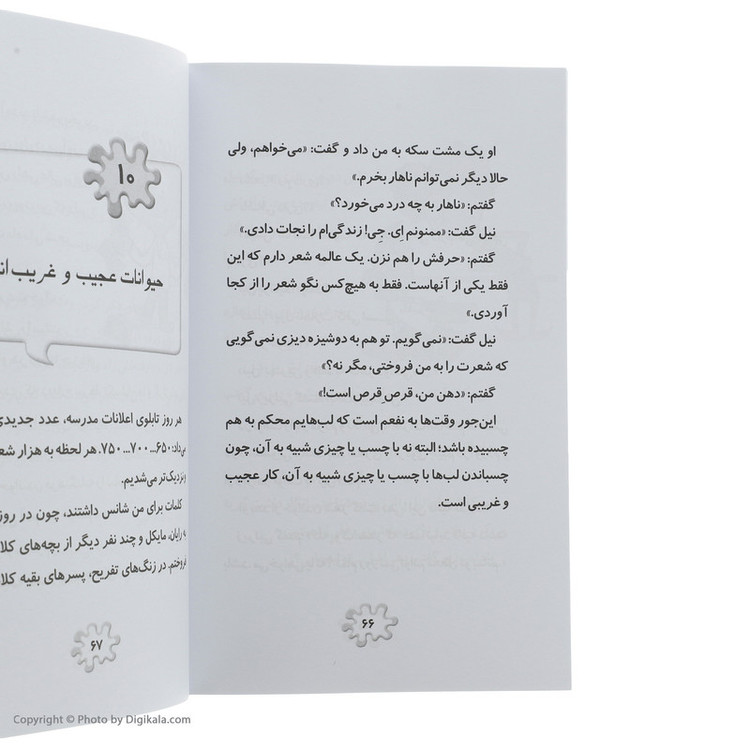 او یک مشت سکه به من داد و گفت: «می‌خواهم، ولی
حالا دیگر نمی‌توانم ناهار بخرم.»
گفتم: «ناهار به چه درد می‌خورد؟»
نیل گفت: «ممنونم اِی. جِی! زندگی‌ام را نجات دادی.»
گفتم: «حرفش را هم نزن. یک عالمه شعر دارم که این
فقط یکی از آنهاست. فقط به هیچ‌کس نگو شعر را از کجا
آوردی.»
نیل گفت: «نمی‌گویم. تو هم به دوشیزه دیزی نمی‌گویی
که شعرت را به من فروختی، مگر نه؟»
گفتم: «دهن من، قرصِ قرص است!»
این‌جور وقت‌ها به نفعم است که لب‌هایم محکم به هم
چسبیده باشد؛ البته نه با چسب یا چیزی شبیه به آن، چون
چسباندن لب‌ها با چسب یا چیزی شبیه به آن، کار عجیب
و غریبی است.
۶۶
۱۰
حیوانات عجیب و غریب
هر روز تابلوی اعلانات مدرسه، عدد جدیدی
می‌داد: ۶۵۰... ۷۰۰... ۷۵۰. هر لحظه به هزار
نزدیک‌تر می‌شدیم.
کلمات برای من شانس داشتند، چون در روز
به رایان، مایکل و چند نفر دیگر از بچه‌های
فروختم. در زنگ‌های تفریح، پسرهای بقیه
۶۷
Copyright © Photo by Digikala.com